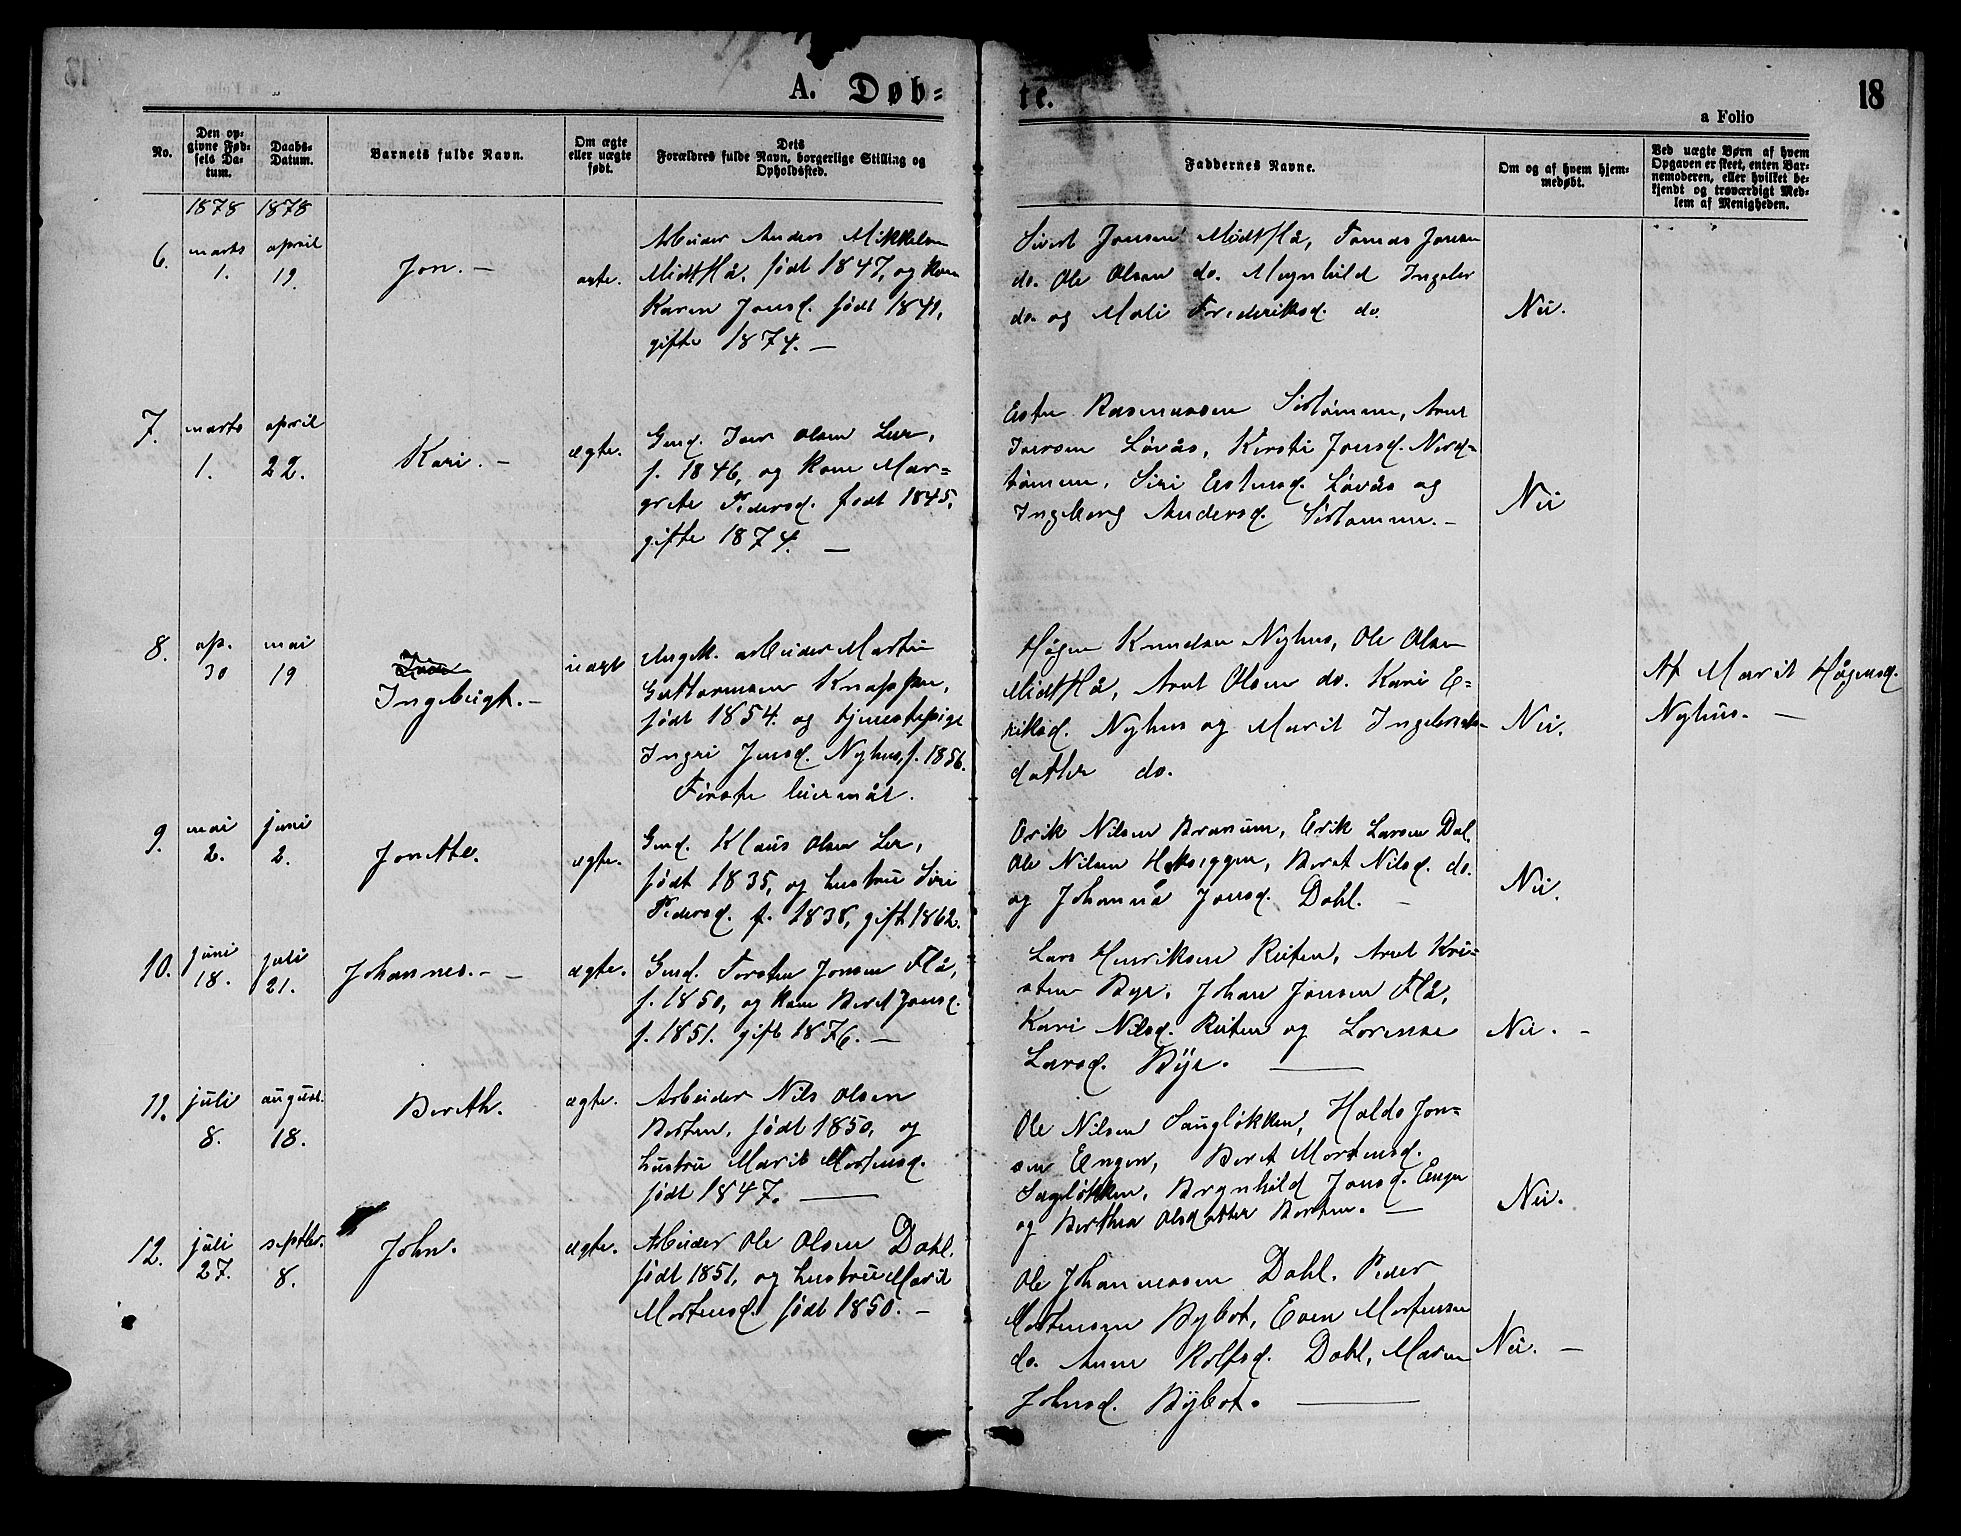 A. Døb=
te.
18
a Folio
No.
Den op=
givne Fød=
sels Da=
tum.
Daabs=
Datum.
Barnets fulde Navn.
Om ægte
eller uægte
født.
Dets
Forældres fulde Navn, borgerlige Stilling og
Opholdssted.
Faddernes Navne.
Om og af hvem hjem=
medøbt.
Ved uægte Børn af hvem
Opgaven er skeet, enten Bar=
nemoderen, eller hvilket be=
kjendt og troværdigt Med=
lem af Menigheden.
1878 1878
6.
marts
1.
april
19.
Jon. –
ægte.
Arbeider Anders Mikkelsen
Midtflå, født 1847, og kone
Karen Jonsd. født 1841,
gifte 1874. –
Sivert Jonsen Midtflå, Tomas Jonsen
do. Ole Olsen do. Magnhild Ingebr
do. og Mali Frederiksd. do.
Nei.
7.
marts
1.
april
22.
Kari. –
ægte.
Gmd. Iver Olsen Ler,
f. 1846, og kone Mar=
grete Pedersd. født 1845,
gifte 1874. –
Esten Rasmussen Sørtømme, Arnt
Iversen Løvås, Kirsti Jonsd. Nord=
tømme, Siri Estensd. Løvås og
Ingeborg Andersd. Sørtømme. –
Nei
8.
ap.
30
mai
19
Ingebrigt. –
uægt
Ungk. arbeider Martin
Guttormsen Knappen,
født 1854. og tjenestepige
Ingri Jensd. Nyhus, f. 1856.
Første leiermål.
Hågen Knudsen Nyhus, Ole Olsen
Midtflå, Arnt Olsen do. Kari E=
riksd. Nyhus og Marit
datter do.
Nei.
Af Marit Hågensd.
Nyhus. –
9.
mai
2.
juni
2.
Jonette.
ægte.
Gmd. Klaus Olsen Ler,
født 1835, og hustru Siri
Pedersd. f. 1838, gift 1862.
Erik Nilsen Brauum, Erik Larsen Dal.
Ole Nilsen Høkseggen, Beret Nilsd. do.
og Johanna Jonsd. Dahl. –
Nei.
10.
juni
18.
juli
21.
Johannes. – –
ægte.
Gmd. Torsten Jonsen Flå,
f. 1850, og kone Beret Jonsd.
f. 1851. gift 1876. –
Lars Henriksen Reiten, Arnt Kri=
sten Bye. Johan Jonsen Flå,
Kari Nilsd. Reiten og Lorense
Larsd. Bye. –
Nei. –
11.
juli
8.
august.
18.
Bereth.
ægte.
Arbeider Nils Olsen
Borten, født 1850, og
hustru Marit Mortensd.
født 1847. –
Ole Nilsen Saugløkken, Haldo Jon=
sen Engen, Beret Mortensd.
Sagløkken, Brynhild Jonsd. Engen
og Berthea Olsdatter Borten. –
Nei.
12.
juli
27.
septbr.
8.
John.
ægte.
Arbeider Ole Olsen Dahl.
født 1851, og hustru Marit
Mortensd. født 1850. –
Ole Johannessen Dahl. Peder
Mortensen Bybot, Even Mortensen
do. Anne Rolfsd. Dahl, Maren
Johnsd. Bybot. –
Nei. –